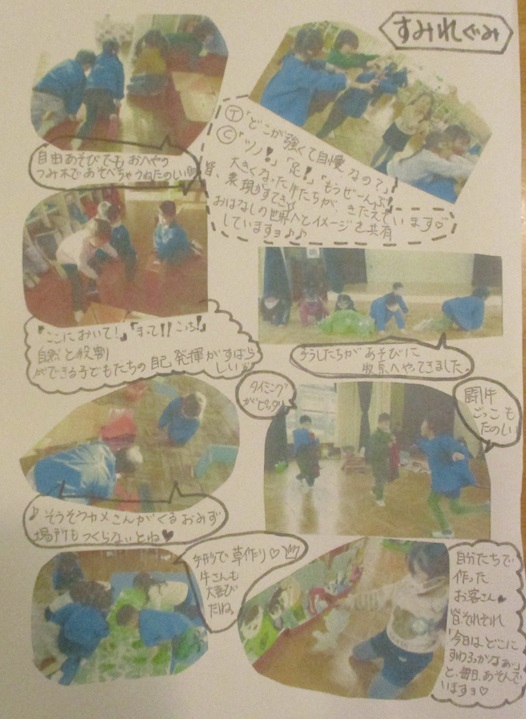 すみれぐみ
自由あそびでも おへやの
つみ木であそべちゃうねたのしい
Ⓣ「どこが強くて自慢なの？」
Ⓒ「ツノ！」「足！」「もうぜーんぶ！」
大きくなった牛たちが きたえて
表現
おはなしの世界へとイメージを共有
していますョ♪♪
「ここにおいて！」「まって!!こっち！」
自然と役割
ができる子どもたちの自己発揮がすばら
しい
うしたちがあそびに
牧草へやってきました。
タイミング
がピッタリ
闘牛
ごっこも
たのしい
♪そうそうカメさんがくるおみず
場所もつくらないとね♥
手形で草作り♡
牛さんも
大喜び
だね。
自分たちで
作った
お客さん♥
皆それぞれ
「今日は、どこに
すわろっかなぁー」
と、毎日、あそんで
いますョ♡